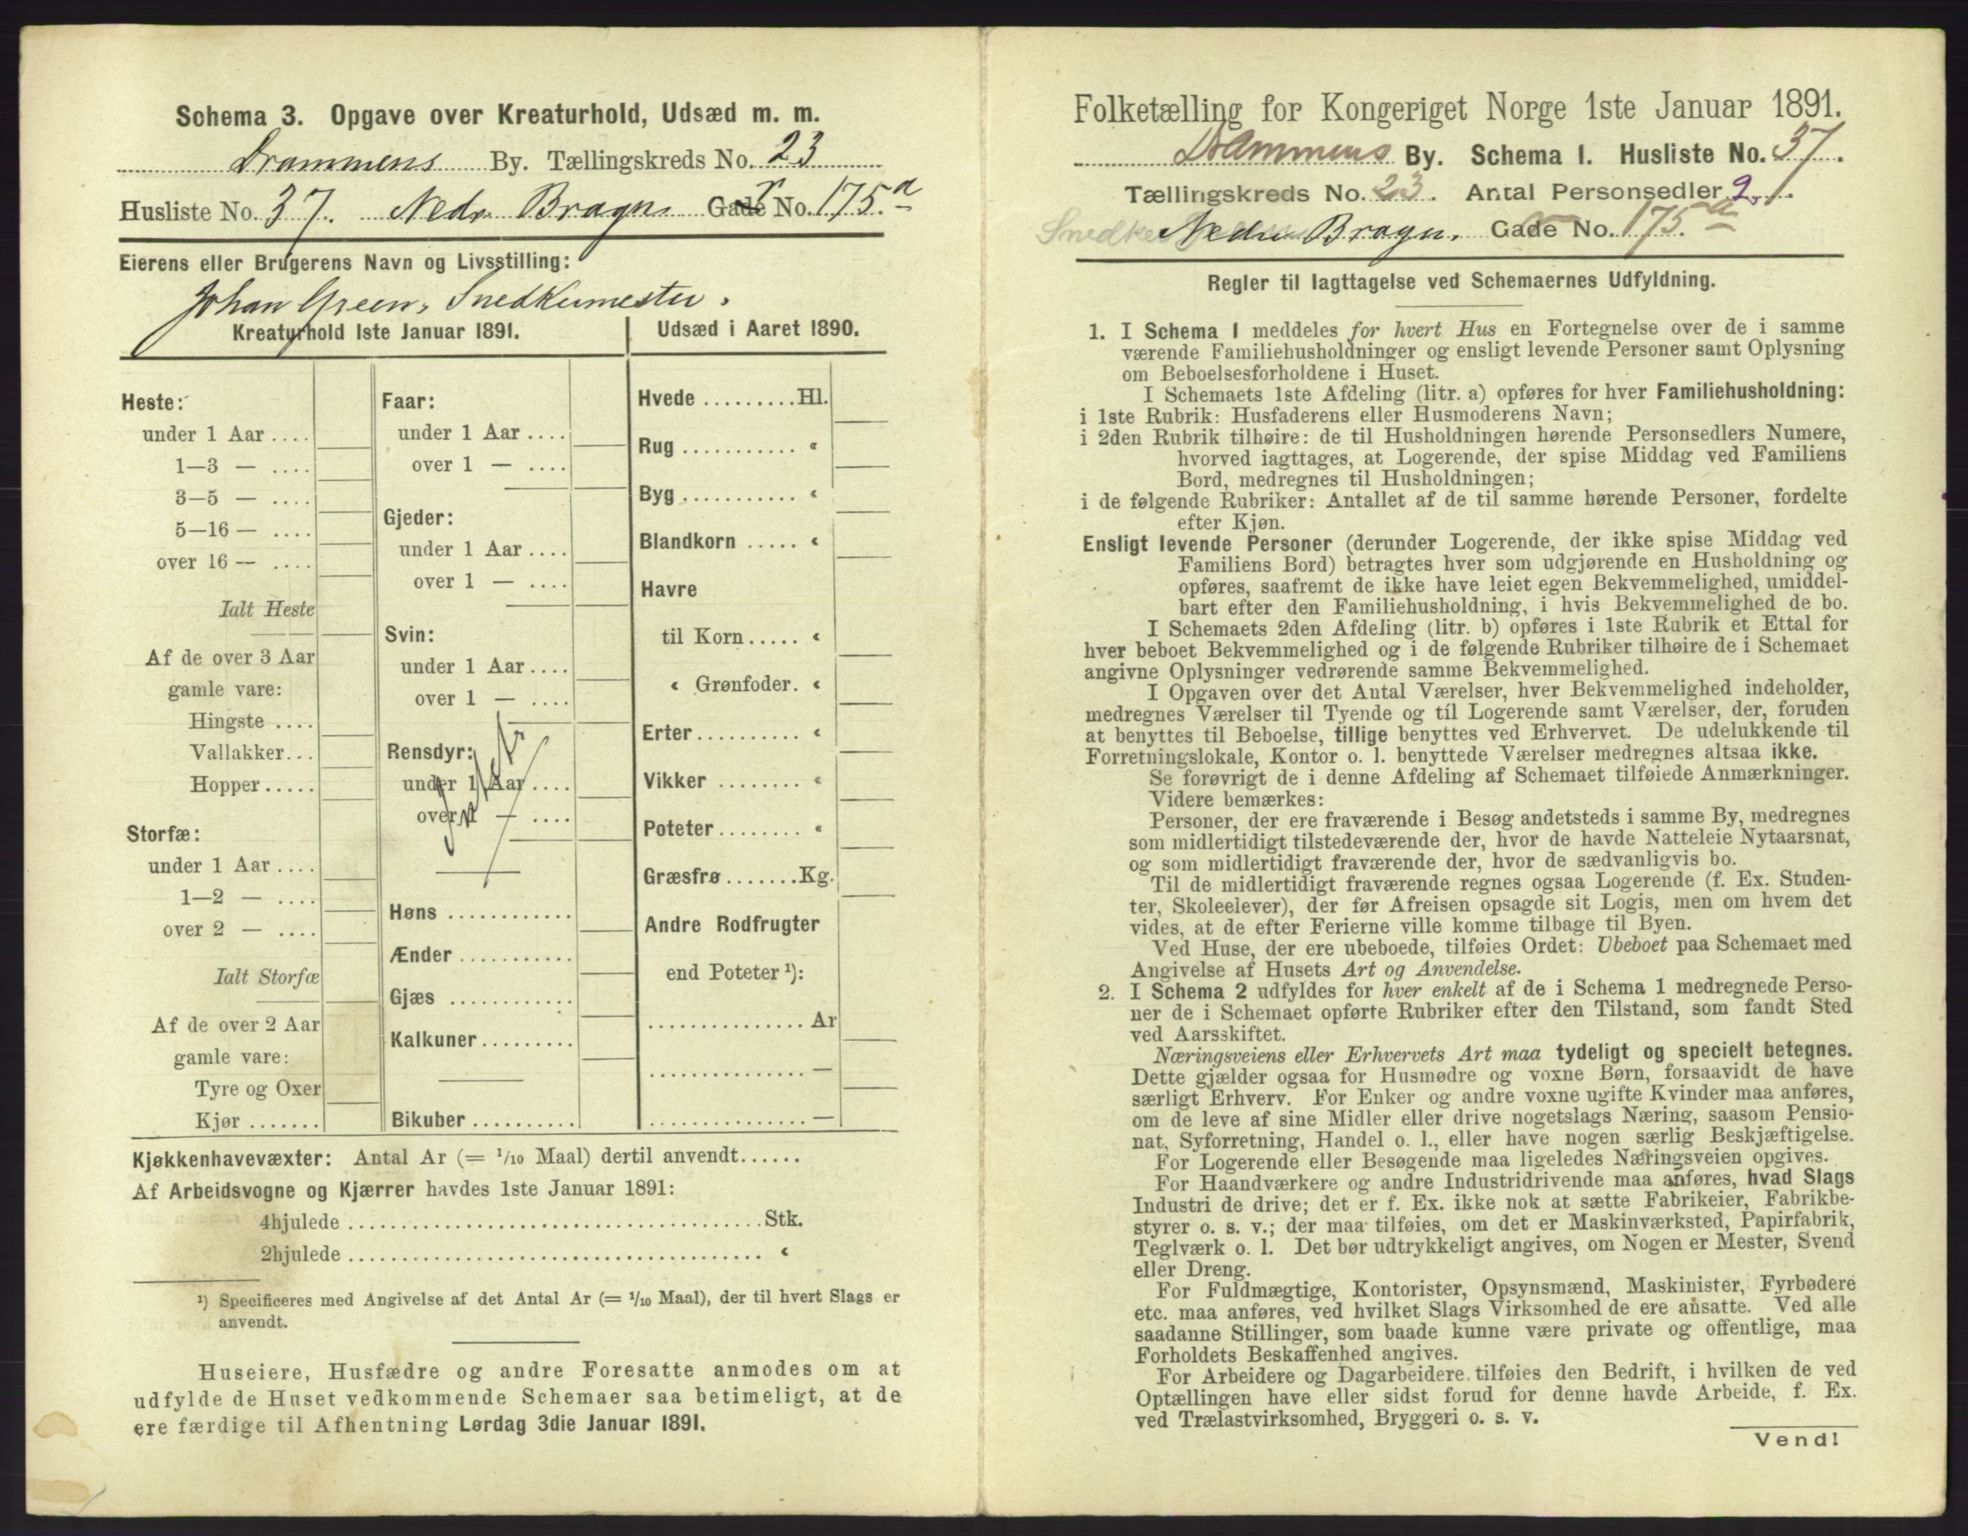 Schema 3. Opgave over Kreaturhold, Udsæd m. m.
Drammens By. Tællingskreds No. 23
Husliste No. 37. Nedr Bragn. Gade No. 175.a
Eierens eller Brugerens Navn og Livsstilling:
Johan Green, Snedkermester.
Kreaturhold 1ste Januar 1891.
Heste:
under 1 Aar ....
1—3 — ....
3—5 — ....
5—16 — ....
over 16 — ....
Ialt Heste
Af de over 3 Aar
gamle vare:
Hingste ....
Vallakker...
Hopper.....
Storfæ:
under 1 Aar ....
1—2 — ....
over 2 — ....
Ialt Storfæ
Af de over 2 Aar
gamle vare:
Tyre og Oxer
Kjør .......
Faar:
under 1 Aar ....
over 1 — ....
Gjeder:
under 1 Aar ....
over 1 — ....
Svin:
under 1 Aar ....
over 1 — ....
Rensdyr:
under 1 Aar ....
over 1 — ....
Høns ............
Ænder ...........
Gjæs ............
Kalkuner.........
Bikuber ..........
Udsæd i Aaret 1890.
Hvede .........Hl.
Rug ........... «
Byg ........... «
Blandkorn ..... «
Havre
til Korn..... «
« Grønfoder. «
Erter.......... «
Vikker ........ «
Poteter........ «
Græsfrø.......Kg.
Andre Rodfrugter
end Poteter ¹):
............... Ar
............... —
............... —
Kjøkkenhavevæxter: Antal Ar (= 1/10 Maal) dertil anvendt......
Af Arbeidsvogne og Kjærrer havdes 1ste Januar 1891:
4hjulede ........................................Stk.
2hjulede ........................................ «
¹) Specificeres med Angivelse af det Antal Ar (= 1/10 Maal), der til hvert Slags er
anvendt.
Huseiere, Husfædre og andre Foresatte anmodes om at
udfylde de Huset vedkommende Schemaer saa betimeligt, at de
ere færdige til Afhentning Lørdag 3die Januar 1891.
Folketælling for Kongeriget Norge 1ste Januar 1891.
Drammens By. Schema 1. Husliste No. 37.
Tællingskreds No. 23. Antal Personsedler 2.
Nedre Bragn. Gade No. 175.a
Regler til Iagttagelse ved Schemaernes Udfyldning.
1. I Schema 1 meddeles for hvert Hus en Fortegnelse over de i samme
værende Familiehusholdninger og ensligt levende Personer samt Oplysning
om Beboelsesforholdene i Huset.
I Schemaets 1ste Afdeling (litr. a) opføres for hver Familiehusholdning:
i 1ste Rubrik: Husfaderens eller Husmoderens Navn;
i 2den Rubrik tilhøire: de til Husholdningen hørende Personsedlers Numere,
hvorved iagttages, at Logerende, der spise Middag ved Familiens
Bord, medregnes til Husholdningen;
i de følgende Rubriker: Antallet af de til samme hørende Personer, fordelte
efter Kjøn.
Ensligt levende Personer (derunder Logerende, der ikke spise Middag ved
Familiens Bord) betragtes hver som udgjørende en Husholdning og
opføres, saafremt de ikke have leiet egen Bekvemmelighed, umiddel-
bart efter den Familiehusholdning, i hvis Bekvemmelighed de bo.
I Schemaets 2den Afdeling (litr. b) opføres i 1ste Rubrik et Ettal for
hver beboet Bekvemmelighed og i de følgende Rubriker tilhøire de i Schemaet
angivne Oplysninger vedrørende samme Bekvemmelighed.
I Opgaven over det Antal Værelser, hver Bekvemmelighed indeholder,
medregnes Værelser til Tyende og til Logerende samt Værelser, der, foruden
at benyttes til Beboelse, tillige benyttes ved Erhvervet. De udelukkende til
Forretningslokale, Kontor o. l. benyttede Værelser medregnes altsaa ikke.
Se forøvrigt de i denne Afdeling af Schemaet tilføiede Anmærkninger.
Videre bemærkes:
Personer, der ere fraværende i Besøg andetsteds i samme By, medregnes
som midlertidigt tilstedeværende der, hvor de havde Natteleie Nytaarsnat,
og som midlertidigt fraværende der, hvor de sædvanligvis bo.
Til de midlertidigt fraværende regnes ogsaa Logerende (f. Ex. Studen-
ter, Skoleelever), der før Afreisen opsagde sit Logis, men om hvem det
vides, at de efter Ferierne ville komme tilbage til Byen.
Ved Huse, der ere ubeboede, tilføies Ordet: Ubeboet paa Schemaet med
Angivelse af Husets Art og Anvendelse.
2. I Schema 2 udfyldes for hver enkelt af de i Schema 1 medregnede Perso-
ner de i Schemaet opførte Rubriker efter den Tilstand, som fandt Sted
ved Aarsskiftet.
Næringsveiens eller Erhvervets Art maa tydeligt og specielt betegnes.
Dette gjælder ogsaa for Husmødre og voxne Børn, forsaavidt de have
særligt Erhverv. For Enker og andre voxne ugifte Kvinder maa anføres,
om de leve af sine Midler eller drive nogetslags Næring, saasom Pensio-
nat, Syforretning, Handel o. l., eller have nogen særlig Beskjæftigelse.
For Logerende eller Besøgende maa ligeledes Næringsveien opgives.
For Haandværkere og andre Industridrivende maa anføres, hvad Slags
Industri de drive; det er f. Ex. ikke nok at sætte Fabrikeier, Fabrikbe-
styrer o. s. v.; der maa tilføies, om det er Maskinværksted, Papirfabrik,
Teglværk o. l. Det bør udtrykkeligt angives, om Nogen er Mester, Svend
eller Dreng.
For Fuldmægtige, Kontorister, Opsynsmænd, Maskinister, Fyrbødere
etc. maa anføres, ved hvilket Slags Virksomhed de ere ansatte. Ved alle
saadanne Stillinger, som baade kunne være private og offentlige, maa
Forholdets Beskaffenhed angives.
For Arbeidere og Dagarbeidere tilføies den Bedrift, i hvilken de ved
Optællingen have eller sidst forud for denne havde Arbeide, f. Ex.
ved Trælastvirksomhed, Bryggeri o. s. v.
Vend!